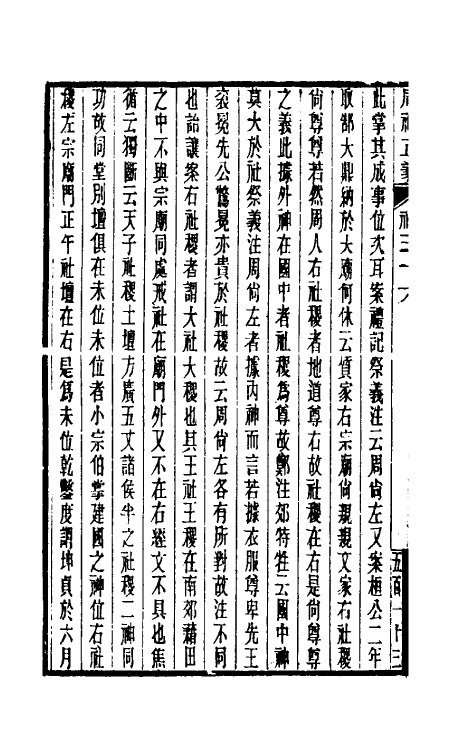 周禮正義
禮三十六
五百一十三
此掌其成事位次耳案禮記祭義注云周尙左又案桓公二年
取郜大鼎納於大廟何休云質家右宗廟尙親親文家右社稷
尙尊尊若然周人右社稷者地道尊右故社稷在右是尙尊尊
之義此據外神在國中者社稷爲尊故鄭注郊特牲云國中神
莫大於社祭義注周尙左者據內神而言若據衣服尊卑先王
袞冕先公鷩冕亦貴於社稷故云周尙左各有所對故注不同
也詒讓案右社稷者謂大社大稷也其王社王稷在南郊藉田
之中不與宗廟同處戒社在廟門外又不在右經文不具也焦
循云獨斷云天子社稷土壇方廣五丈諸侯半之社稷二神同
功故同堂別壇俱在未位未位者小宗伯掌建國之神位右社
稷左宗廟門正午社壇在右是爲未位乾鑿度謂坤貞於六月